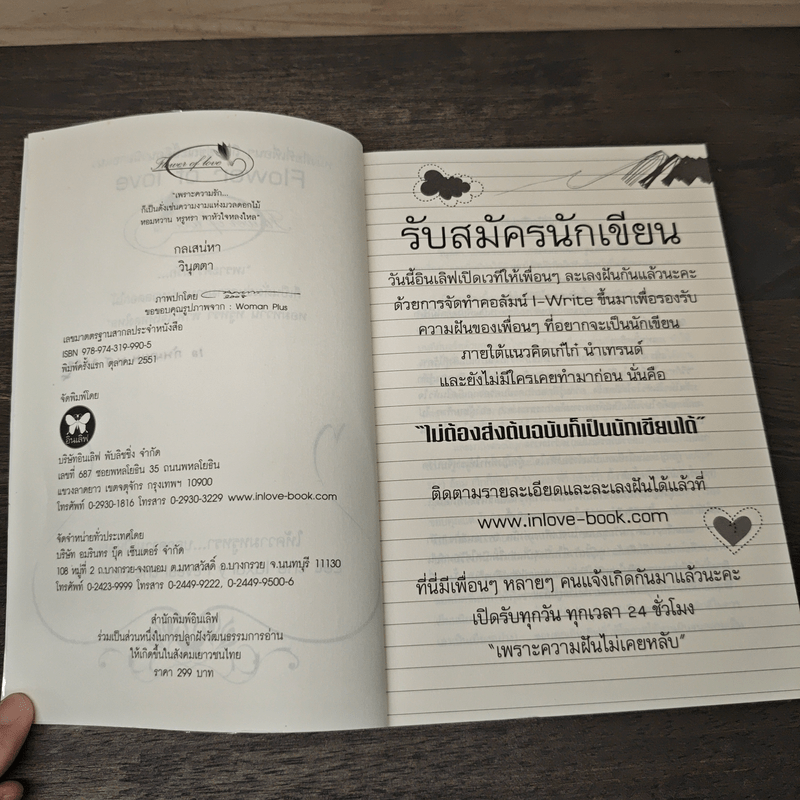 Flower of love
"เพราะความรัก...
ก็เป็นดั่งเช่นความงามแห่งมวลดอกไม้
หอมหวาน หรูหรา พาหัวใจหลงใหล"
กลเสน่หา
วินุตตา
ภาพปกโดย
ขอขอบคุณรูปภาพจาก : Woman Plus
เลขมาตรฐานสากลประจำหนังสือ
ISBN 978-974-319-990-5
พิมพ์ครั้งแรก ตุลาคม 2551
จัดพิมพ์โดย
อินเลิฟ
บริษัทอินเลิฟ พับลิชชิ่ง จำกัด
เลขที่ 687 ซอยพหลโยธิน 35 ถนนพหลโยธิน
แขวงลาดยาว เขตจตุจักร กรุงเทพฯ 10900
โทรศัพท์ 0-2930-1816 โทรสาร 0-2930-3229 www.inlove-book.com
จัดจำหน่ายทั่วประเทศโดย
บริษัท อมรินทร บุ๊ค เซ็นเตอร์ จำกัด
108 หมู่ที่ 2 ถ.บางกรวย-จงถนอม ต.มหาสวัสดิ์ อ.บางกรวย จ.นนทบุรี 11130
โทรศัพท์ 0-2423-9999 โทรสาร 0-2449-9222, 0-2449-9500-6
สำนักพิมพ์อินเลิฟ
ร่วมเป็นส่วนหนึ่งในการปลูกฝังวัฒนธรรมการอ่าน
ให้เกิดขึ้นในสังคมเยาวชนไทย
ราคา 299 บาท
รับสมัครนักเขียน
วันนี้อินเลิฟเปิดเวทีให้เพื่อนๆ ละเลงฝันกันแล้วนะคะ
ด้วยการจัดทำคอลัมน์ I-Write ขึ้นมาเพื่อรองรับ
ความฝันของเพื่อนๆ ที่อยากจะเป็นนักเขียน
ภายใต้แนวคิดเก๋ไก๋ นำเทรนด์
และยังไม่มีใครเคยทำมาก่อน นั่นคือ
"ไม่ต้องส่งต้นฉบับก็เป็นนักเขียนได้"
ติดตามรายละเอียดและละเลงฝันได้แล้วที่
www.inlove-book.com
ที่นี่มีเพื่อนๆ หลายๆ คนแจ้งเกิดกันมาแล้วนะคะ
เปิดรับทุกวัน ทุกเวลา 24 ชั่วโมง
"เพราะความฝันไม่เคยหลับ"